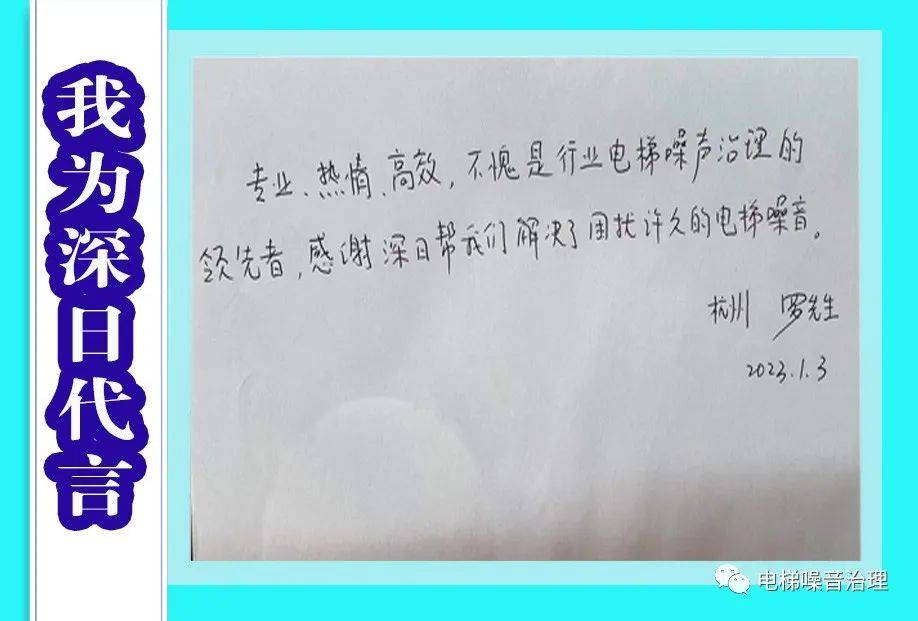 我为深日代言
专业、热情、高效，不愧是行业电梯噪声治理的
领先者，感谢深日帮我们解决了困扰许久的电梯噪音。
杭州 罗先生
2023.1.3
电梯噪音治理